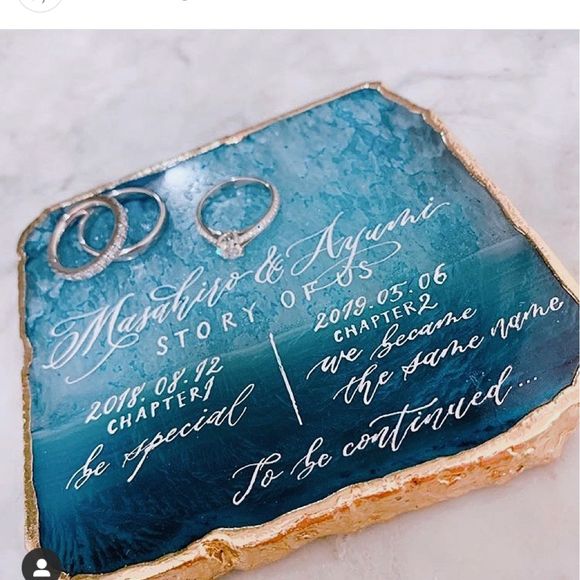 Masahiro & Ayumi
STORY OF US
2018.08.12
CHAPTER1
be special
2019.05.06
CHAPTER2
we became
the same name
To be continued...